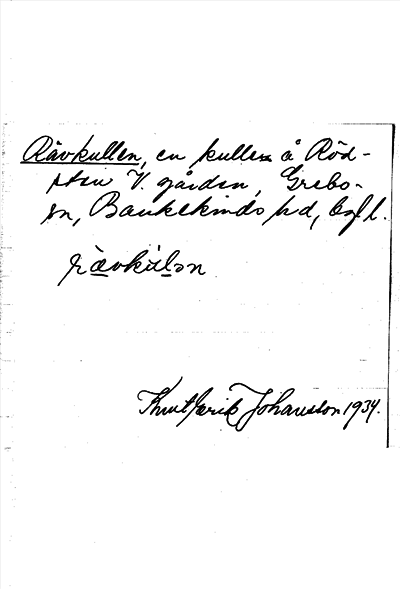 Rävkullen, en kulle å Röd-
sten V. gården, Grebo
sn, Bankekinds hd, Ögl.
rävkulən
Knut Erik Johansson 1934.